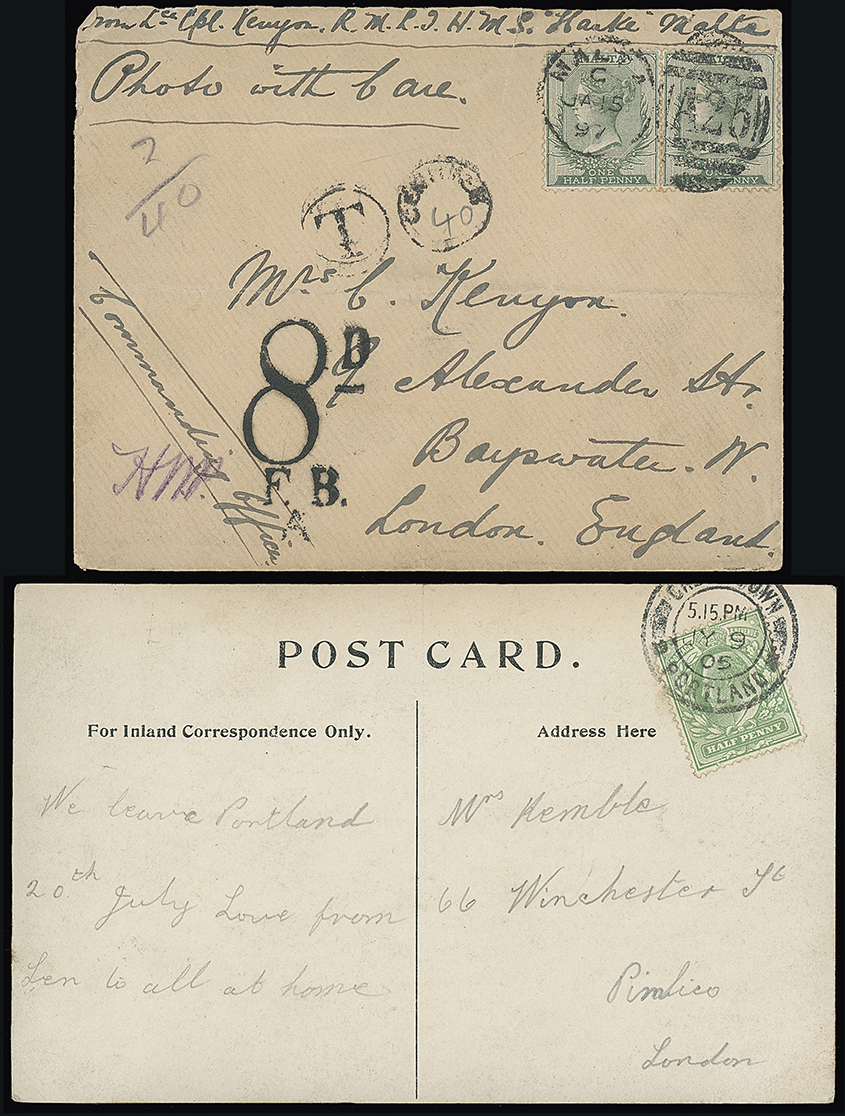 from Lce Cpl. Kenyon. R. M. L. I. H. M. S. "Hawke" Malta
Photo with Care.
MALTA
C
JA 15
97
A25
MALTA
ONE
HALF PENNY
ONE
HALF PENNY
2/40
T
CENTIMES
40
Mrs C. Kenyon.
8D
9 Alexander Str.
Bayswater. W.
F. B.
London. England.
Commanding Officer.
POST CARD.
5.15.PM
JY 9
05
PORTLAND
HALF PENNY
For Inland Correspondence Only.
Address Here
We leave Portland
20th July Love from
Len to all at home
Mrs Kemble
66 Winchester St
Pimlico
London